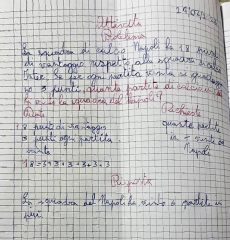 Attività
Problema
La squadra di calcio Napoli ha 18 punti
di vantaggio rispetto alla squadra
Inter. Se per ogni partita vinta si guadagnano
3 punti, quante partite di
vinto la squadra del Napoli?
Dati
Richieste
18 punti di vantaggio
quante partite
3 punti ogni partita
ha vinto il
vinta
Napoli
18=3+3+3+3+3+3
Risposta
La squadra del Napoli ha vinto 6 partite in
più